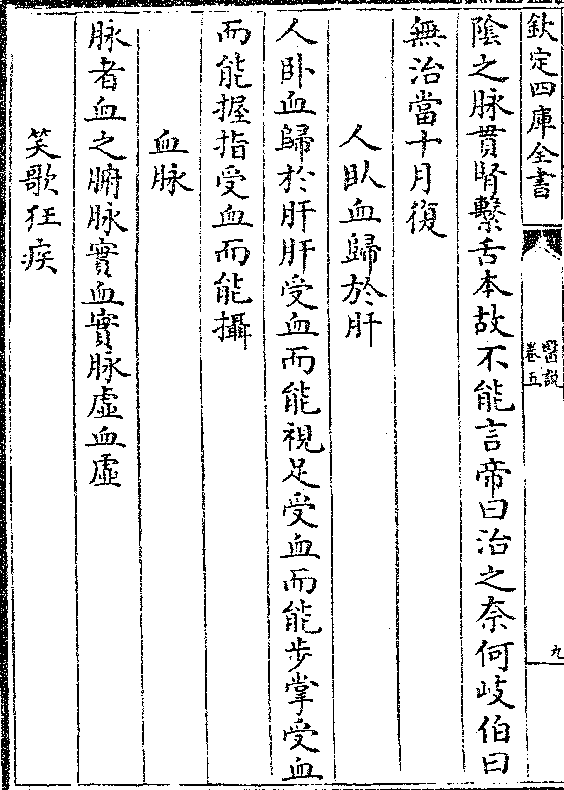 欽定四庫全書
醫說
卷五
九
陰之脉貫腎繫舌本故不能言帝曰治之奈何岐伯曰
無治當十月復
人臥血歸於肝
人卧血歸於肝肝受血而能視足受血而能步掌受血
而能握指受血而能攝
血脉
脉者血之腑脉實血實脉虛血虛
笑歌狂疾